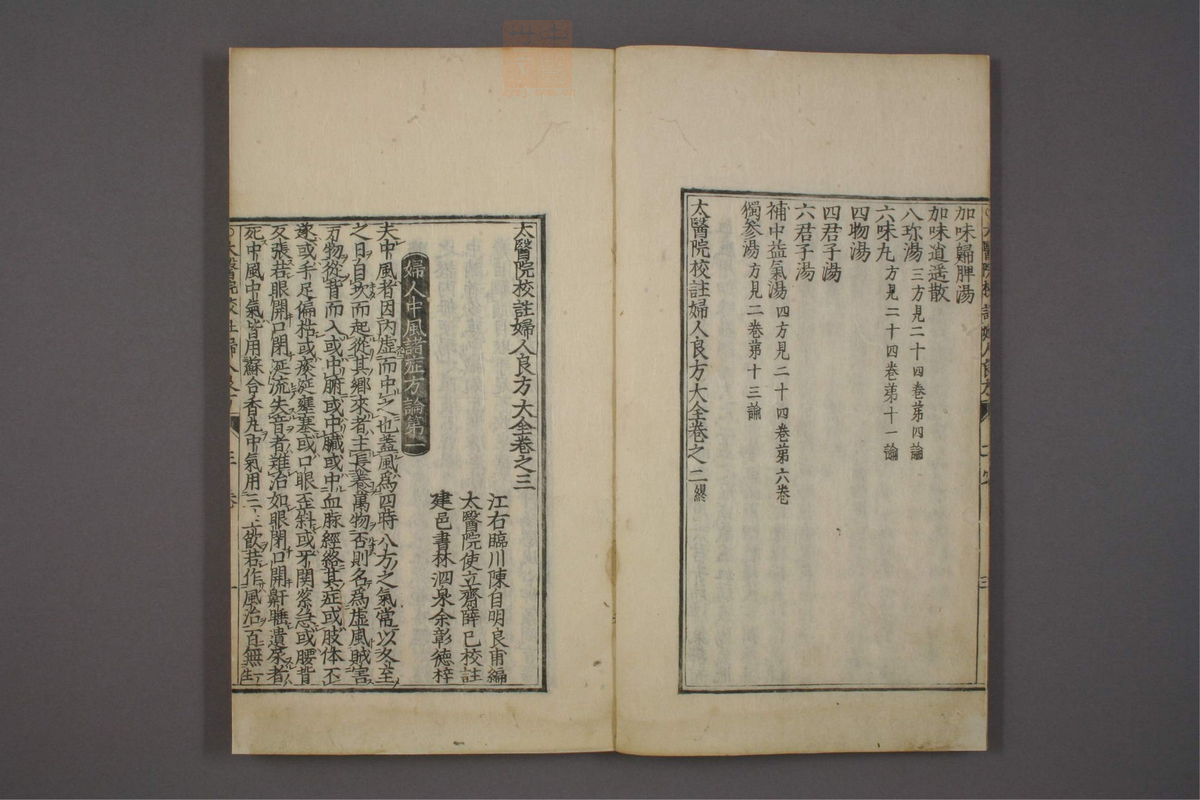 加味歸脾湯
加味逍遥散
八珎湯 三方見二十四卷苐四論
六味丸 方見二十四卷苐十一論
四物湯
四君子湯
六君子湯
補中益氣湯 四方見二十四卷苐六卷
獨参湯 方見二卷苐十三論
太醫院校註婦人良方大全卷之二終
太醫院校註婦人良方大全卷之三
江右臨川陳自明良甫編
太醫院使立齋薛已校註
建邑書林泗泉余彰德梓
婦人中風諸症方論第一
夫中風者因内虛而中之也蓋風爲四時八方之氣常以冬至
之日自坎而起從其鄉來者主長養萬物否則名爲虛風賊害
万物從背而入或中腑或中臟或中血脉經絡其症或肢体不
遂或手足偏枯或痰延壅塞或口眼歪斜或牙関紧急或腰背
反張若眼開口閉延流失音者难治如眼閉口開鼾睡遺尿者
死中風中氣皆用蘇合香丸中氣用三飲若作風治百無一生